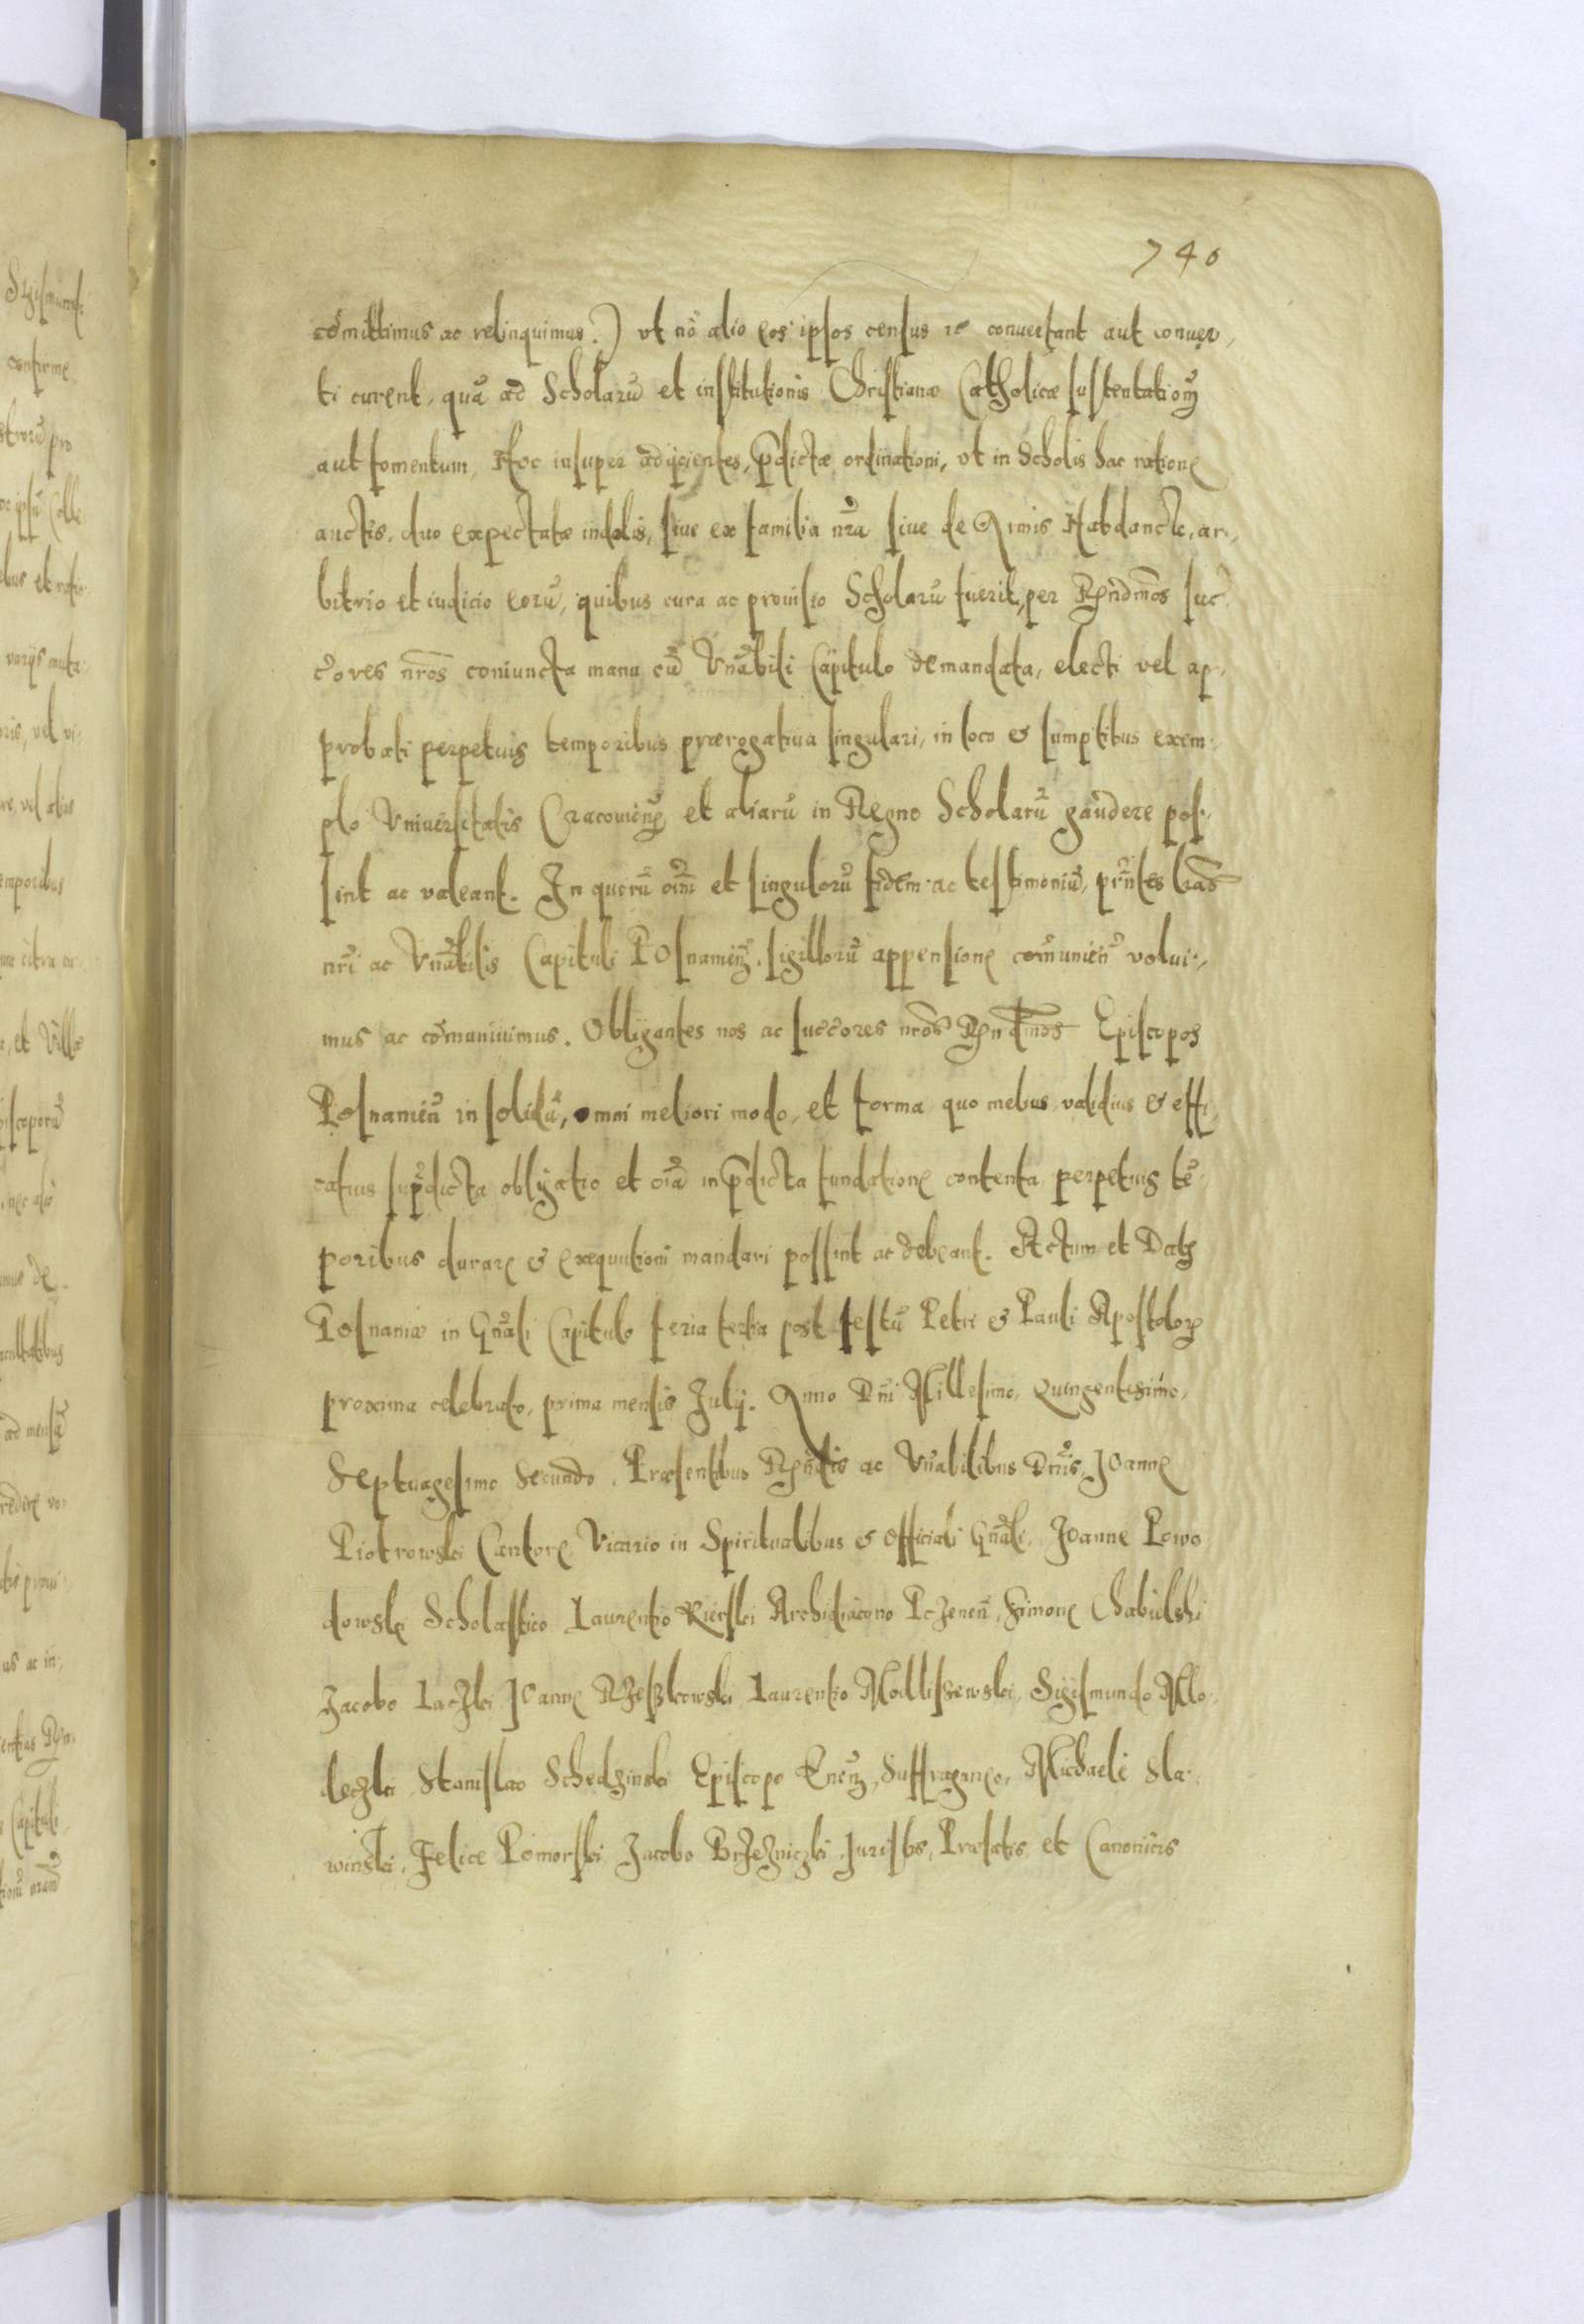 740
cōmittimus ac relinquimus.) vt nō alio eos ipsos census ze conuertant aut conuer,
ti curent, quā ad Scholarū et institutionis Christianæ Catholicæ sustentationē
aut fomentum, Hoc insuper adijcientes, p̄dictæ ordinationi, vt in Scholis hac ratione
auctis, duo expectatæ indolis, siue ex familia nr̄a siue de Armis Habdanck, ar,
bitrio et iudicio eorū, quibus cura ac prouisio Scholarū fuerit, per Rn̄dmos suc
c̄ores nr̄os coniuncta manu cū Vn̄abili Capitulo demandata, electi vel ap,
probati perpetuis temporibus prærogatiua singulari, in loco & sumptibus exem,
plo Vniuersitatis Cracouien̄ et aliarū in Regno Scholarū gaudere pos,
sint ac valeant. In quorū oīm et singulorū fidem ac testimoniū, prn̄tes lr̄as
nr̄i ac Vn̄abilis Capituli Posnanien̄. sigillorū appensione com̄unien̄ volui,
mus ac cōmuniuimus. Obligantes nos ac succ̄ores nr̄os Rn̄dmos Episcopos
Posnanien̄ in solidū, omni meliori modo, et forma quo melius, validius & effi,
catius supr̄dicta obligatio et oīa in p̄dicta fundatione contenta perpetuis tē
poribus durare & exequutioni mandari possint ac debeant. Actum et Dat
Posnaniæ in Gn̄ali Capitulo feria tertia post festū Petri & Pauli Apostolorꝫ
proxima celebrato, prima mensis Julij. Anno Dn̄i Millesimo, Quingentesimo,
Septuagesimo Secundo. Præsentibus Rn̄dis ac Vn̄abilibus Dn̄is, Joanne
Piotrowski Cantore, Vicario in Spiritualibus & Officiali Gn̄ali, Joanne Powo
dowski Scholastico Laurentio Kierski Archidiacono Pczenen̄, Simone Chabielski
Jacobo Laczki Joanne Rzeszkowski Laurentio Modliszewski, Sigismundo Mlo,
deczki Stanislao Schedzinski Episcopo Enen̄, Suffraganeo, Michaele Sla,
winski, Felice Pomorski Jacobo Brzezniczki Juristis, Prælatis et Canonicis